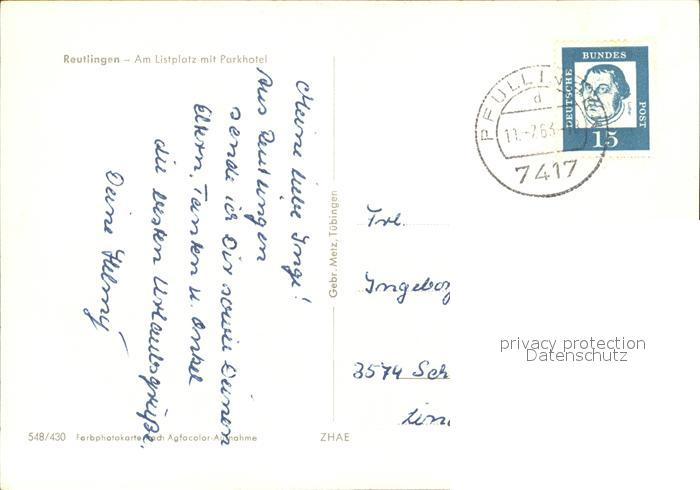 Reutlingen – Am Listplatz mit Parkhotel
Meine liebe Inge!
Aus Reutlingen
sende ich Dir sowie Deinen
Eltern, Tanten u. Onkel
die besten Urlaubsgrüße.
Deine Helmy
Gebr. Metz, Tübingen
DEUTSCHE
BUNDES
POST
15
PFULLI
d
11.-7.63
7417
Frl.
Ingeborg
3574 Sch
privacy protection
Datenschutz
548/430 Farbphotokarte nach Agfacolor-Aufnahme
ZHAE